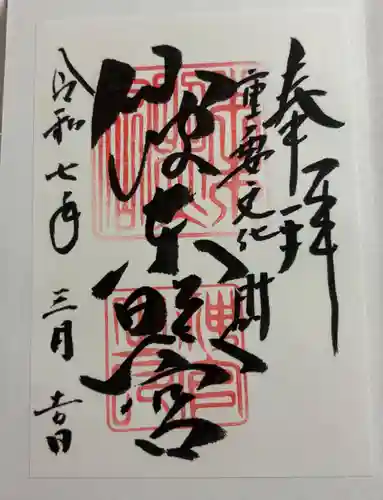 奉拝
重要文化財
仙波東照宮
令和七年 三月 吉日